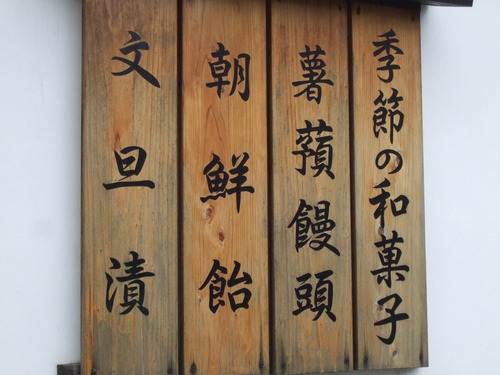 季節の和菓子
薯蕷饅頭
朝鮮飴
文旦漬